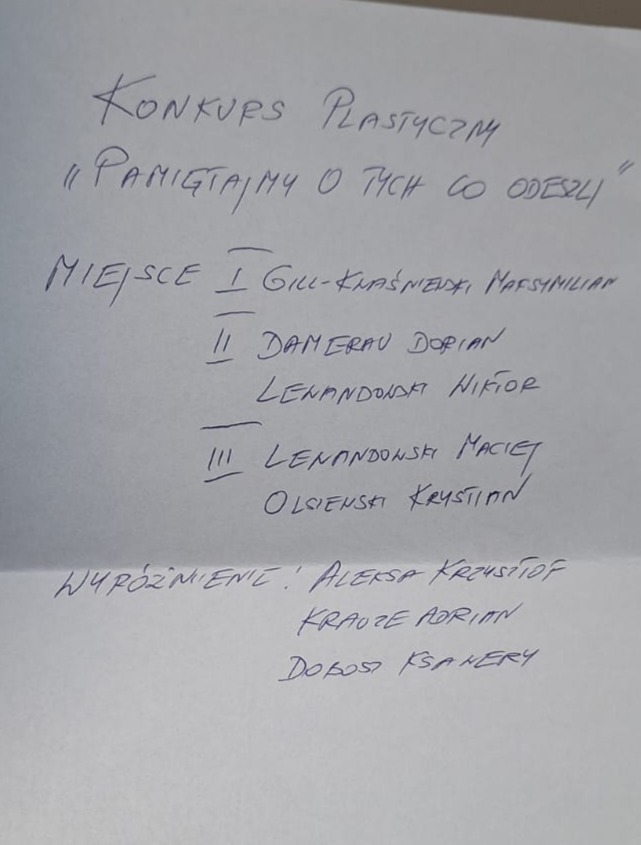 KONKURS PLASTYCZNY
"PAMIĘTAJMY O TYCH CO ODESZLI"
MIEJSCE I GILL-KWAŚNIEWSKI MAKSYMILIAN
II DAMERAU DORIAN
LEWANDOWSKI WIKTOR
III LEWANDOWSKI MACIEJ
OLSIEWSKI KRYSTIAN
WYRÓŻNIENIE: ALEKSA KRZYSZTOF
KRAUZE ADRIAN
DOBOSZ KSAWERY